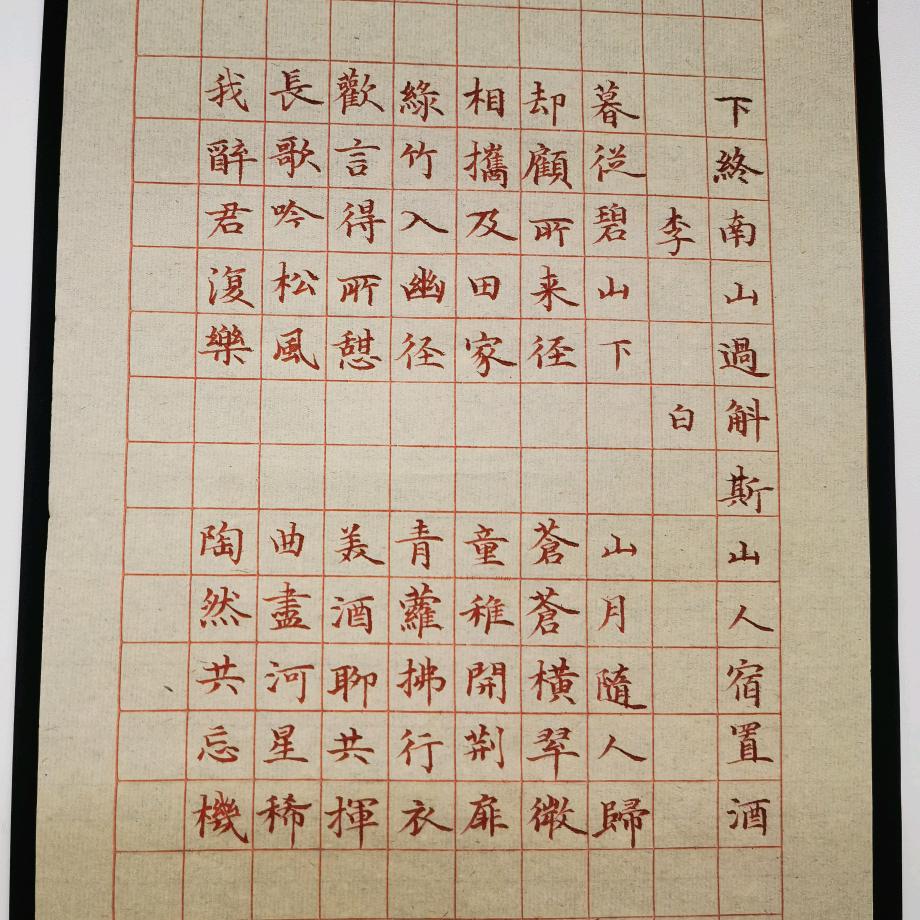 下終南山過斛斯山人宿置酒
李白
暮從碧山下 山月隨人歸
却顧所来径 蒼蒼橫翠微
相攜及田家 童稚開荆扉
綠竹入幽径 青蘿拂行衣
歡言得所憇 美酒聊共揮
長歌吟松風 曲盡河星稀
我醉君復樂 陶然共忘機